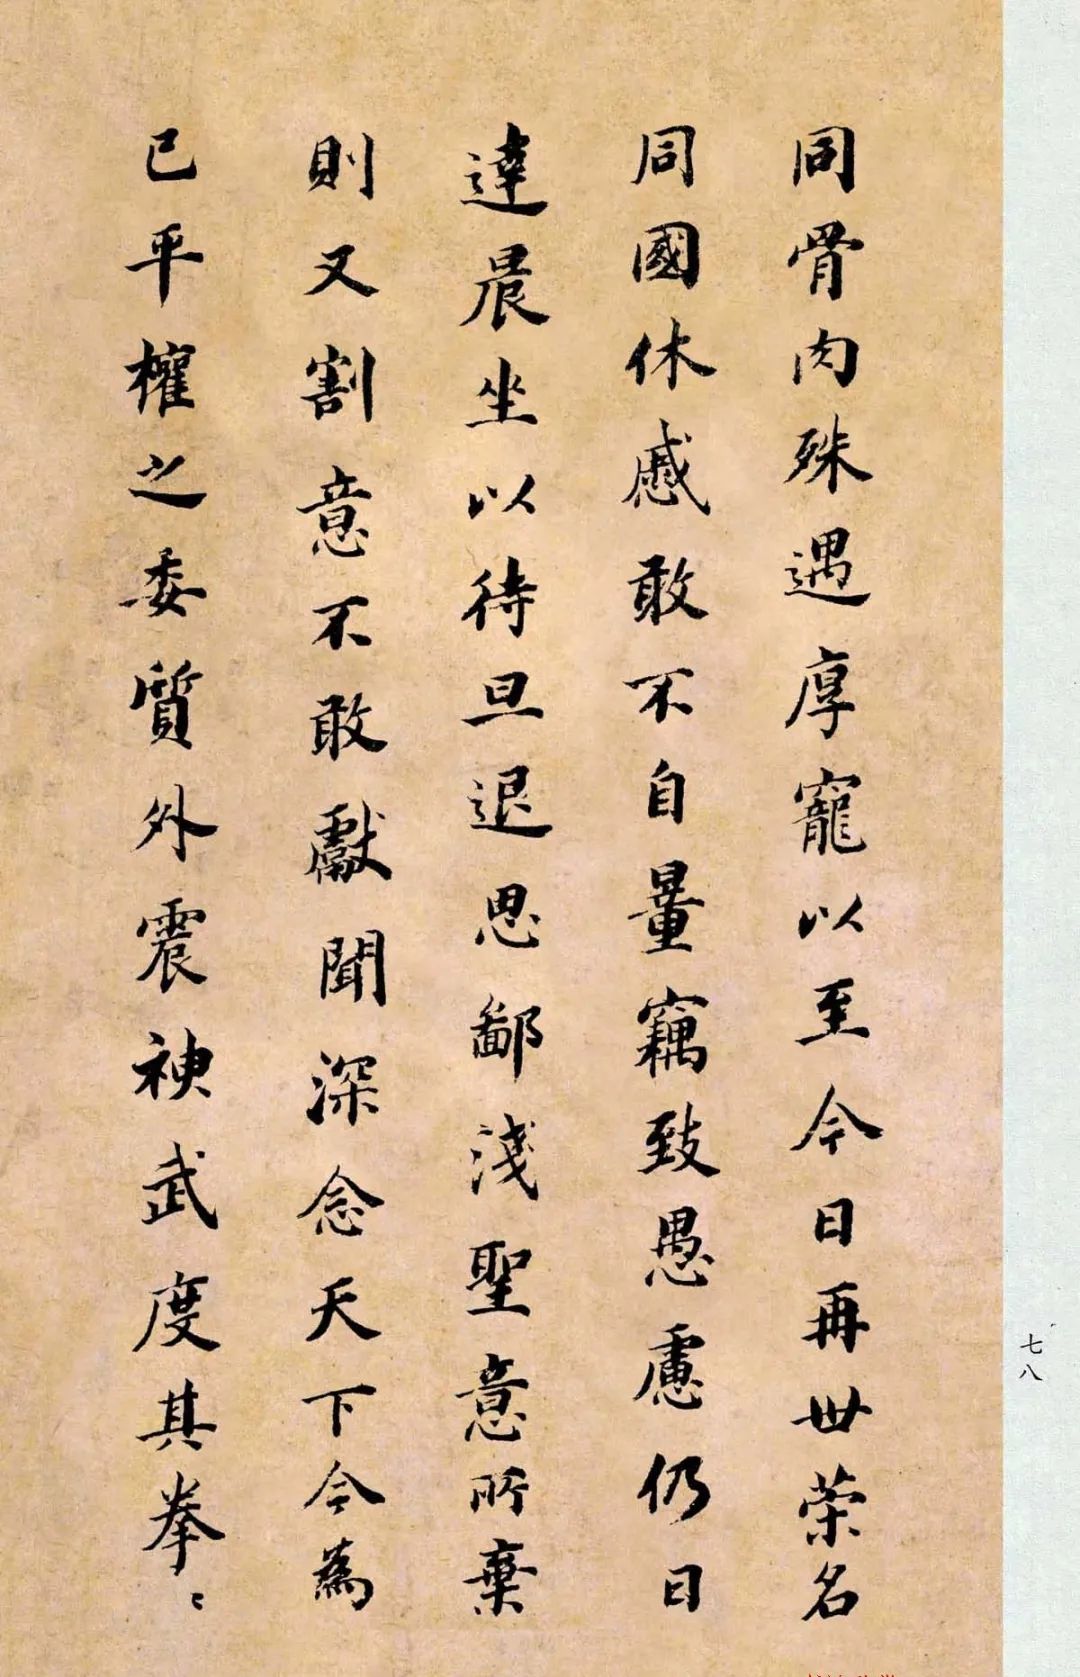 同骨肉殊遇厚寵以至今日再世荣名
同國休慼敢不自量竊致愚慮仍日
達晨坐以待旦退思鄙淺聖意所棄
則又割意不敢獻聞深念天下今為
已平權之委質外震神武度其拳〻
七八